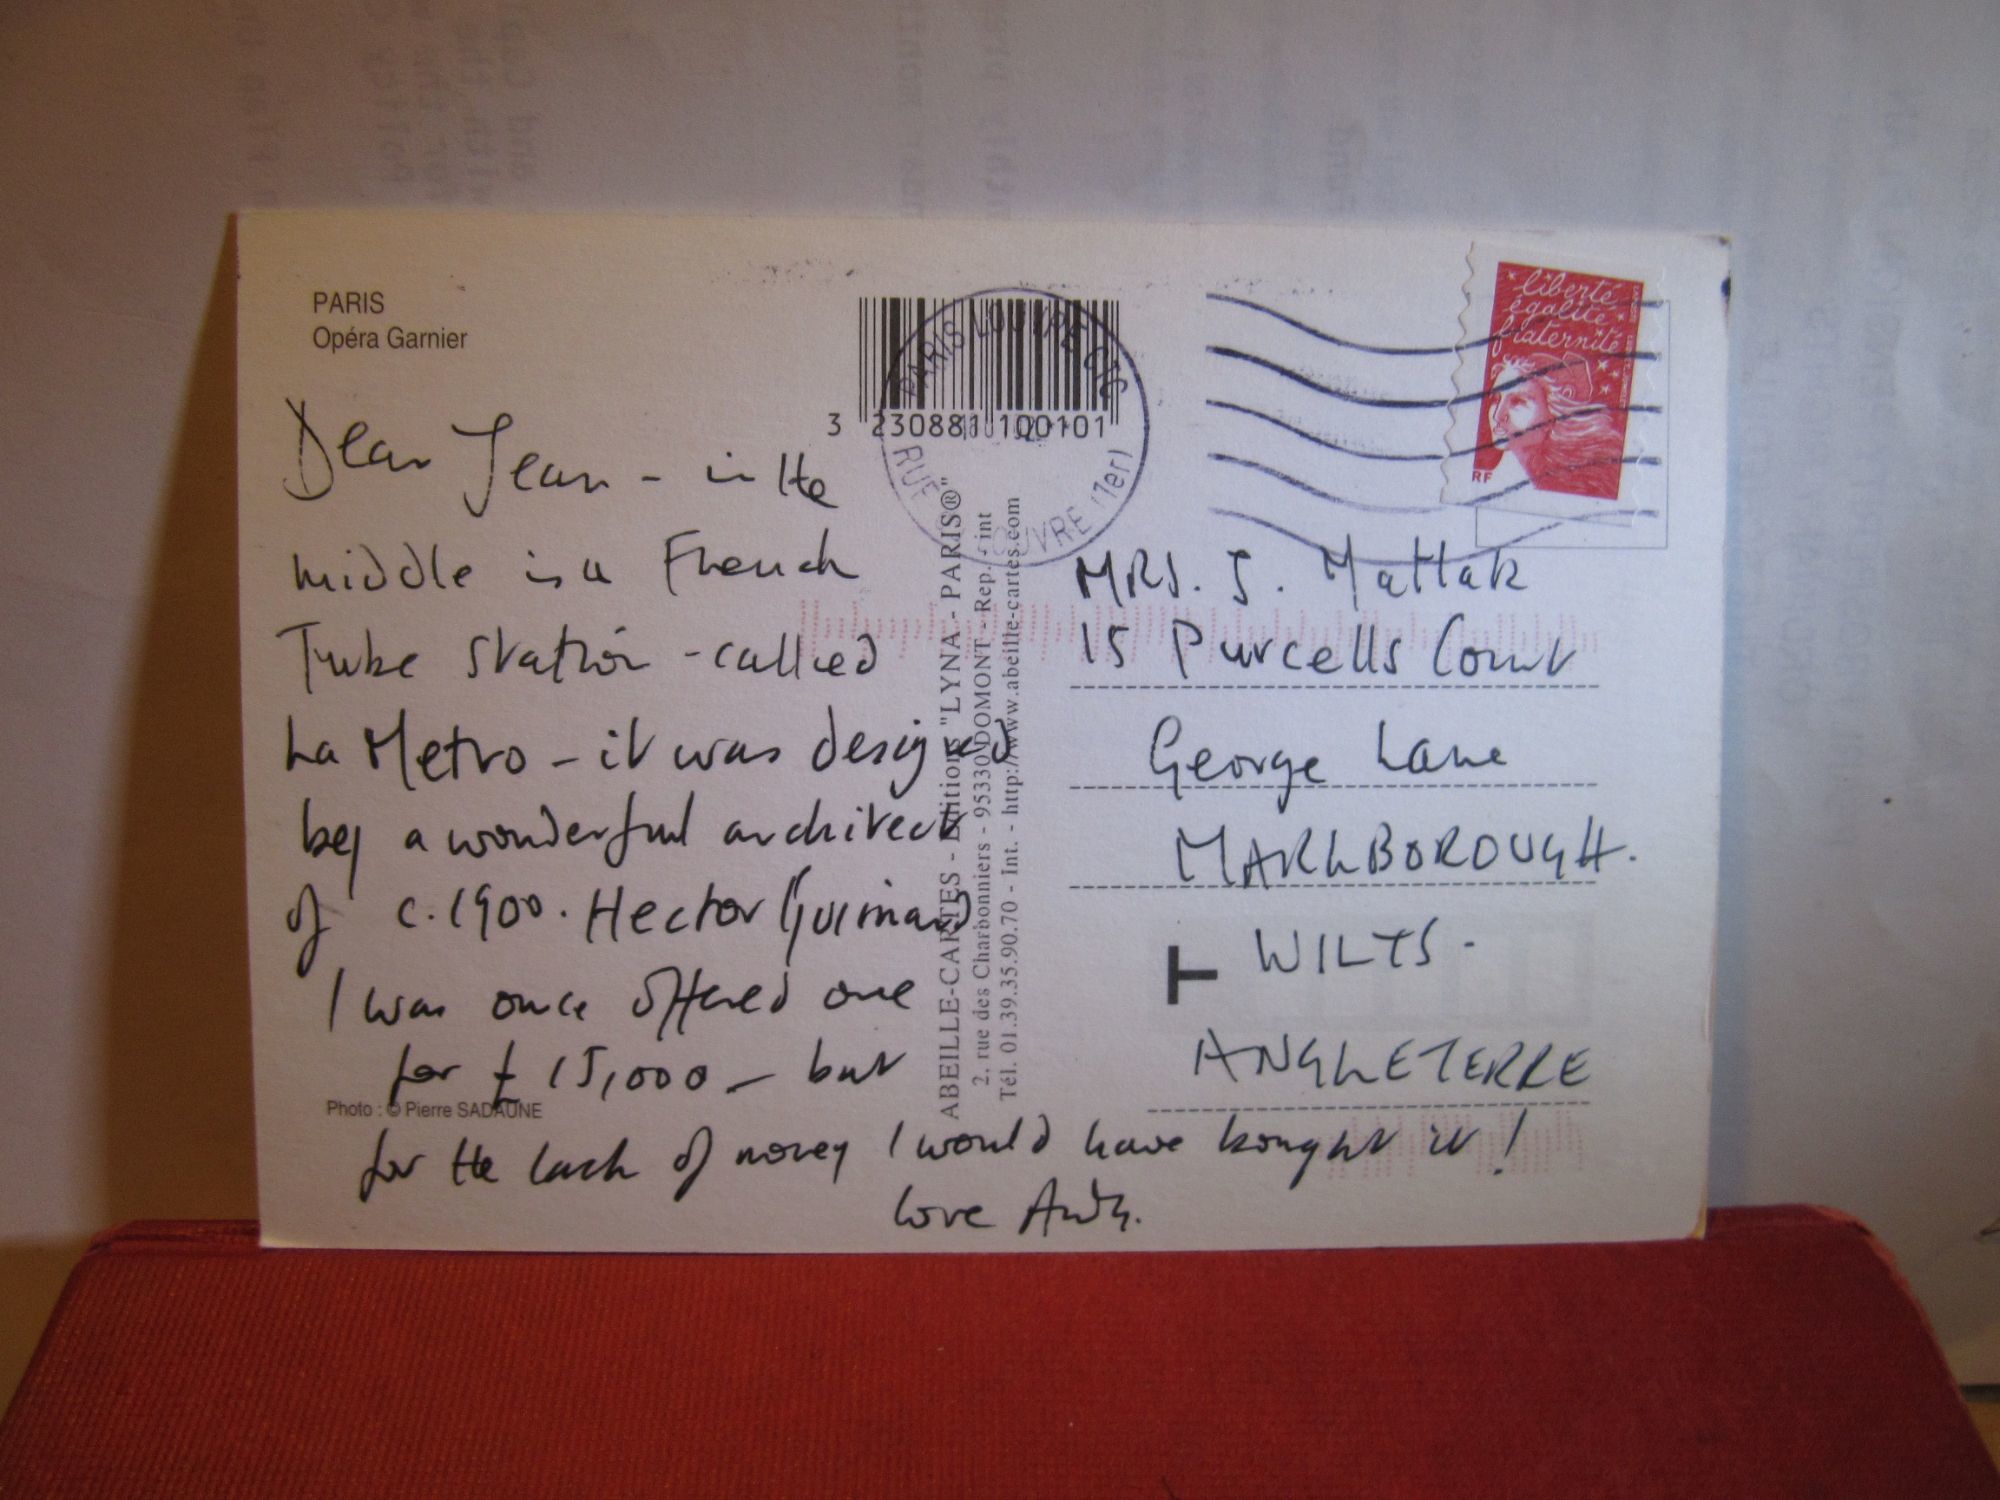 PARIS
Opéra Garnier
Dear Jean - in the
middle is a French
Tube Station - called
La Metro - it was designed
by a wonderful architect
of c. 1900. Hector Guimard
I was once offered one
for £15,000 - but
for the lack of money I would have bought it!
love Andy.
Photo : © Pierre SADAUNE
3 230881 100101
PARIS LOUVRE CTC
RUE LOUVRE (1er)
ABEILLE-CARTES - Editions "LYNA - PARIS®"
2, rue des Charbonniers - 95330 DOMONT - Rep. int
Tél. 01.39.35.90.70 - Int. - http://www.abeille-cartes.com
liberté
égalité
fraternité
RF
MRS. J. Mattak
15 Purcells Court
George Lane
MARLBOROUGH.
WILTS -
T
ANGLETERRE